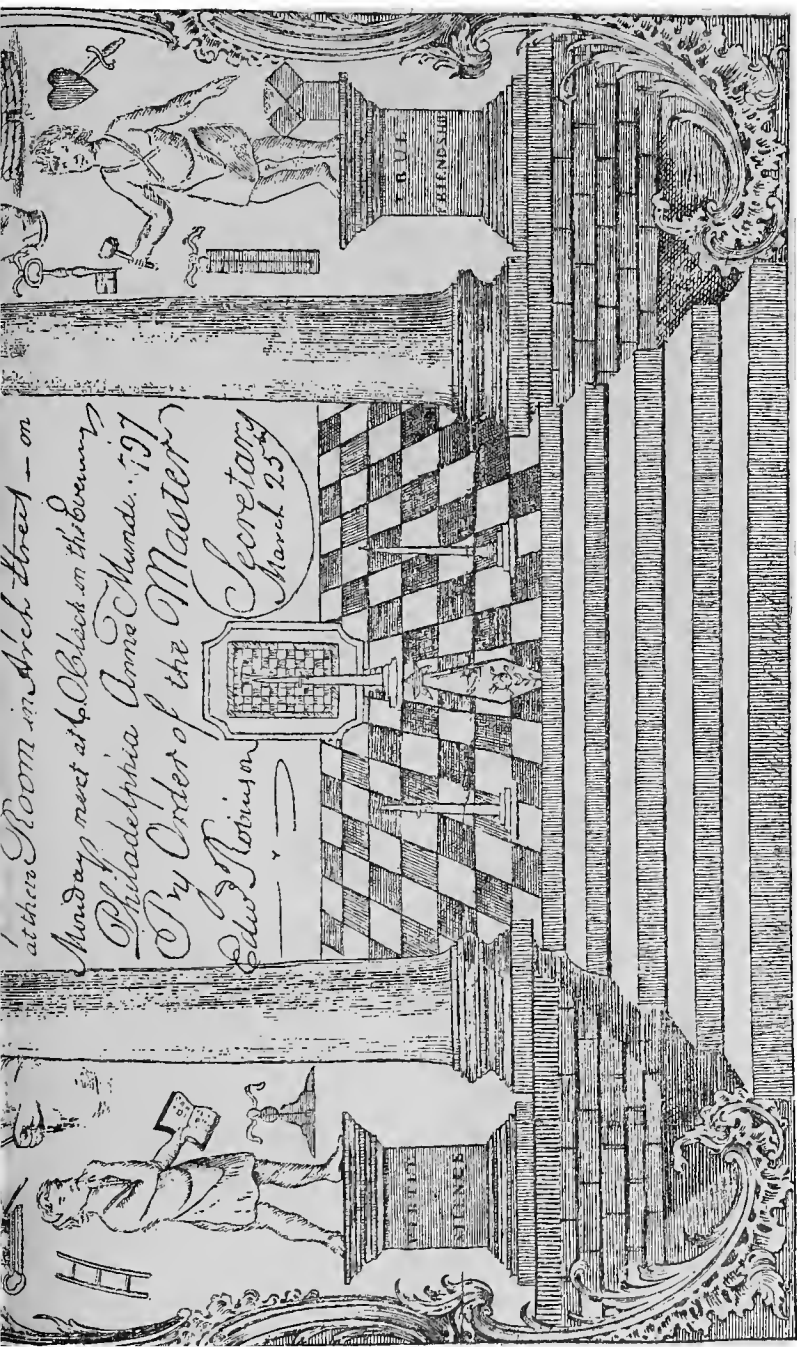 at their Room in Arch Street – on
Monday next at 6 OClock in the Evening
Philadelphia Anno Mundi
By Order of the Master
Edwd Robinson Secretary
March 25th
VIRTUE
SILENCE
TRUE
FRIENDSHIP